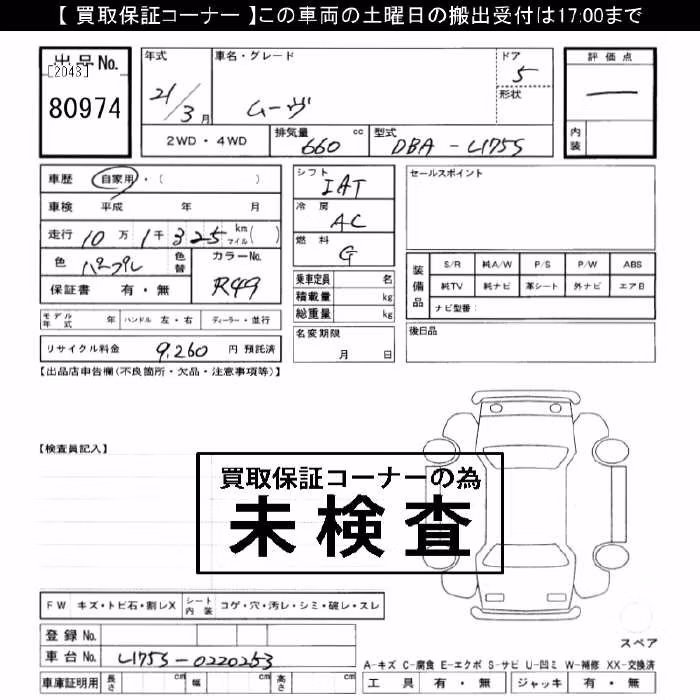 【 買取保証コーナー 】この車両の土曜日の搬出受付は17:00まで
出品No.
[2043]
80974
年式 車名・グレード ドア
21/3月 ムーヴ 5
形状
2WD・4WD 排気量 660 cc 型式 DBA-L175S
評価点
—
内装
車歴 自家用・( )
車検 平成 年 月
走行 10万1千325 km マイル( )
色 パープル 色替 カラーNo. R49
保証書 有・無
モデル年式 年 ハンドル 左・右 ディーラー・並行
リサイクル料金 9,260 円 預託済
シフト IAT
冷房 AC
燃料 G
乗車定員 名
積載量 kg
総重量 kg
名変期限
月 日
セールスポイント
装備品 S/R 純A/W P/S P/W ABS
純TV 純ナビ 革シート 外ナビ エアB
ナビ型番:
後日品
【出品店申告欄(不良箇所・欠品・注意事項等)】
【検査員記入】
買取保証コーナーの為
未検査
FW キズ・トビ石・割レX シート内装 コゲ・穴・汚レ・シミ・破レ・スレ
登録No.
車台No. L175S-0220253
車庫証明用 長さ cm 幅 cm 高さ cm
スペア
A-キズ C-腐食 E-エクボ S-サビ U-凹ミ W-補修 XX-交換済
工具 有・無 ジャッキ 有・無